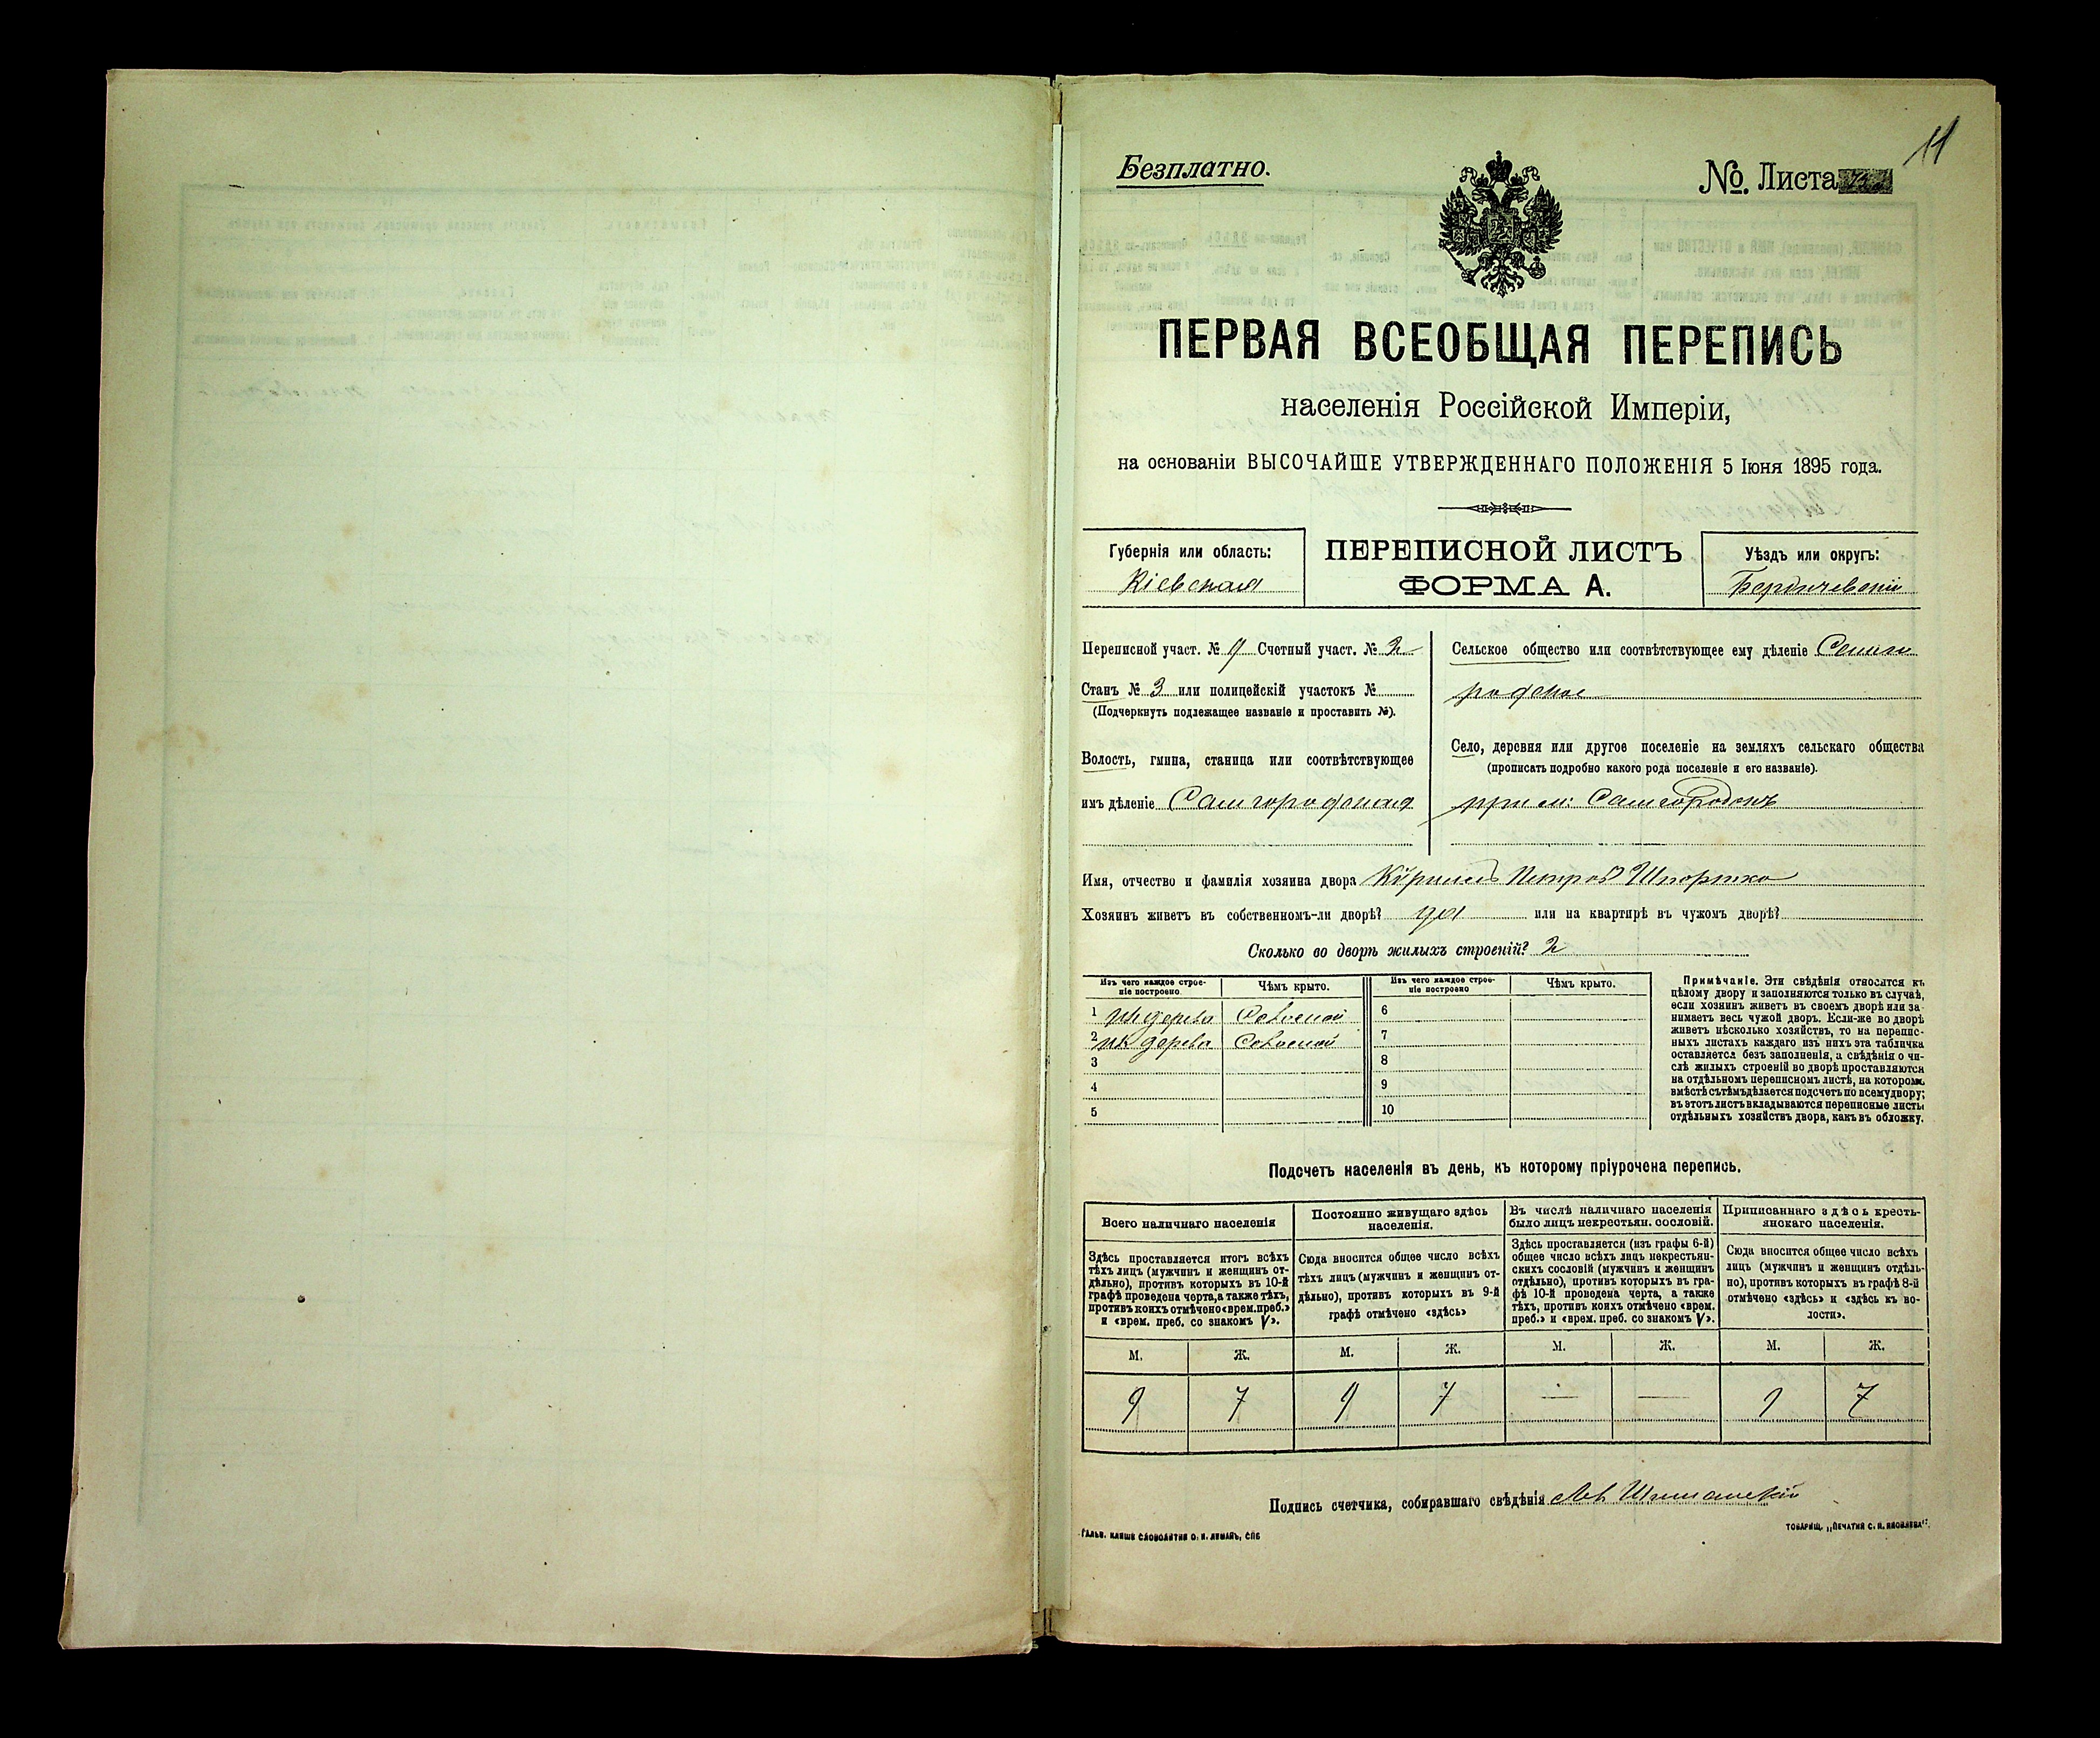 11
Безплатно.
№. Листа
ПЕРВАЯ ВСЕОБЩАЯ ПЕРЕПИСЬ
населенія Россійской Имперіи,
на основаніи ВЫСОЧАЙШЕ УТВЕРЖДЕННАГО ПОЛОЖЕНІЯ 5 Іюня 1895 года.
Губернія или область:
Кіевская
ПЕРЕПИСНОЙ ЛИСТЪ
ФОРМА А.
Уѣздъ или округъ:
Бердичевскій
Переписной участ. № 9 Счетный участ. № 2
Станъ № 3 или полицейскій участокъ №
(Подчеркнуть подлежащее названіе и проставить №).
Волость, гмина, станица или соотвѣтствующее
имъ дѣленіе Самгородская
Сельское общество или соотвѣтствующее ему дѣленіе Самго
родское
Село, деревня или другое поселеніе на земляхъ сельскаго общества
(прописать подробно какого рода поселеніе и его названіе).
Самгородокъ
Имя, отчество и фамилія хозяина двора Кирилъ Петровъ Шпортко
Хозяинъ живетъ въ собственномъ-ли дворѣ? да или на квартирѣ въ чужомъ дворѣ?
Сколько во дворѣ жилыхъ строеній? 2
Изъ чего каждое строе-
ніе построено
Чѣмъ крыто.
Изъ чего каждое строе-
ніе построено
Чѣмъ крыто.
1 изъ дерева Соломой 6
2 изъ дерева Соломой 7
3 8
4 9
5 10
Примѣчаніе. Эти свѣдѣнія относятся къ
цѣлому двору и заполняются только въ случаѣ,
если хозяинъ живетъ въ своемъ дворѣ или за-
нимаетъ весь чужой дворъ. Если-же во дворѣ
живетъ нѣсколько хозяйствъ, то на перепис-
ныхъ листахъ каждаго изъ нихъ эта табличка
оставляется безъ заполненія, а свѣдѣнія о чи-
слѣ жилыхъ строеній во дворѣ проставляются
на отдѣльномъ переписномъ листѣ, на которомъ
вмѣстѣ съ тѣмъ дѣлается подсчетъ по всему двору;
въ этотъ листъ вкладываются переписные листы
отдѣльныхъ хозяйствъ двора, какъ въ обложку.
Подсчетъ населенія въ день, къ которому пріурочена перепись.
Всего наличнаго населенія
Здѣсь проставляется итогъ всѣхъ
тѣхъ лицъ (мужчинъ и женщинъ от-
дѣльно), противъ которыхъ въ 10-й
графѣ проведена черта, а также тѣхъ,
противъ коихъ отмѣчено «врем. преб.»
и «врем. преб. со знакомъ V».
Постоянно живущаго здѣсь
населенія.
Сюда вносится общее число всѣхъ
тѣхъ лицъ (мужчинъ и женщинъ от-
дѣльно), противъ которыхъ въ 9-й
графѣ отмѣчено «здѣсь»
Въ числѣ наличнаго населенія
было лицъ некрестьян. сословій.
Здѣсь проставляется (изъ графы 6-й)
общее число всѣхъ лицъ некрестьян-
скихъ сословій (мужчинъ и женщинъ
отдѣльно), противъ которыхъ въ гра-
фѣ 10-й проведена черта, а также
тѣхъ, противъ коихъ отмѣчено «врем.
преб.» и «врем. преб. со знакомъ V».
Приписаннаго здѣсь кресть-
янскаго населенія.
Сюда вносится общее число всѣхъ
лицъ (мужчинъ и женщинъ отдѣль-
но), противъ которыхъ въ графѣ 8-й
отмѣчено «здѣсь» и «здѣсь къ во-
лости».
М. Ж. М. Ж. М. Ж. М. Ж.
9 7 9 7 — — 9 7
Подпись счетчика, собиравшаго свѣдѣнія
ГАЛЬВ. КЛИШЕ СЛОВОЛИТНИ О. И. ЛЕМАНЪ, СПБ
ТОВАРИЩ. „ПЕЧАТНЯ С. П. ЯКОВЛЕВА".